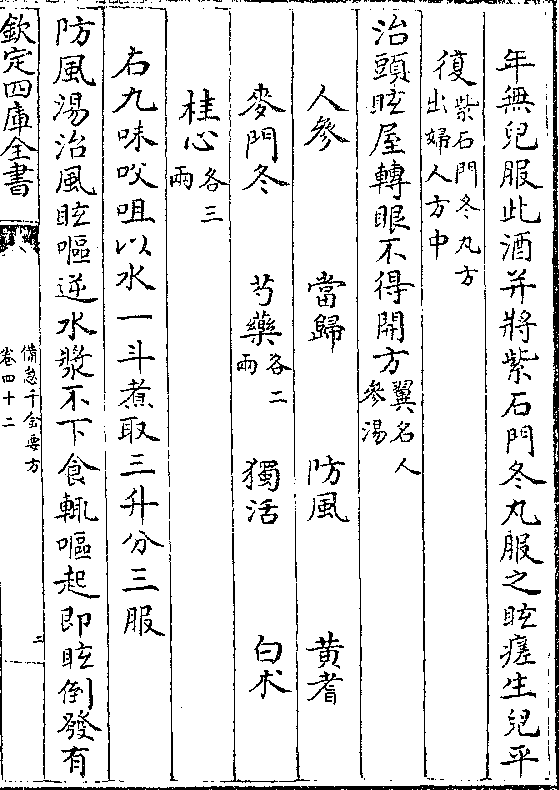 年無兒服此酒并將紫石門冬丸服之眩瘥生兒平
復紫石門冬丸方
出婦人方中
治頭眩屋轉眼不得開方翼名人
參湯
人參　當歸　防風　黄耆
麥門冬　芍藥各二
兩　獨活　白朮
桂心各三
兩
右九味㕮咀以水一斗煮取三升分三服
防風湯治風眩嘔逆水漿不下食輒嘔起即眩倒發有
欽定四庫全書
備急千金要方
卷四十二
二